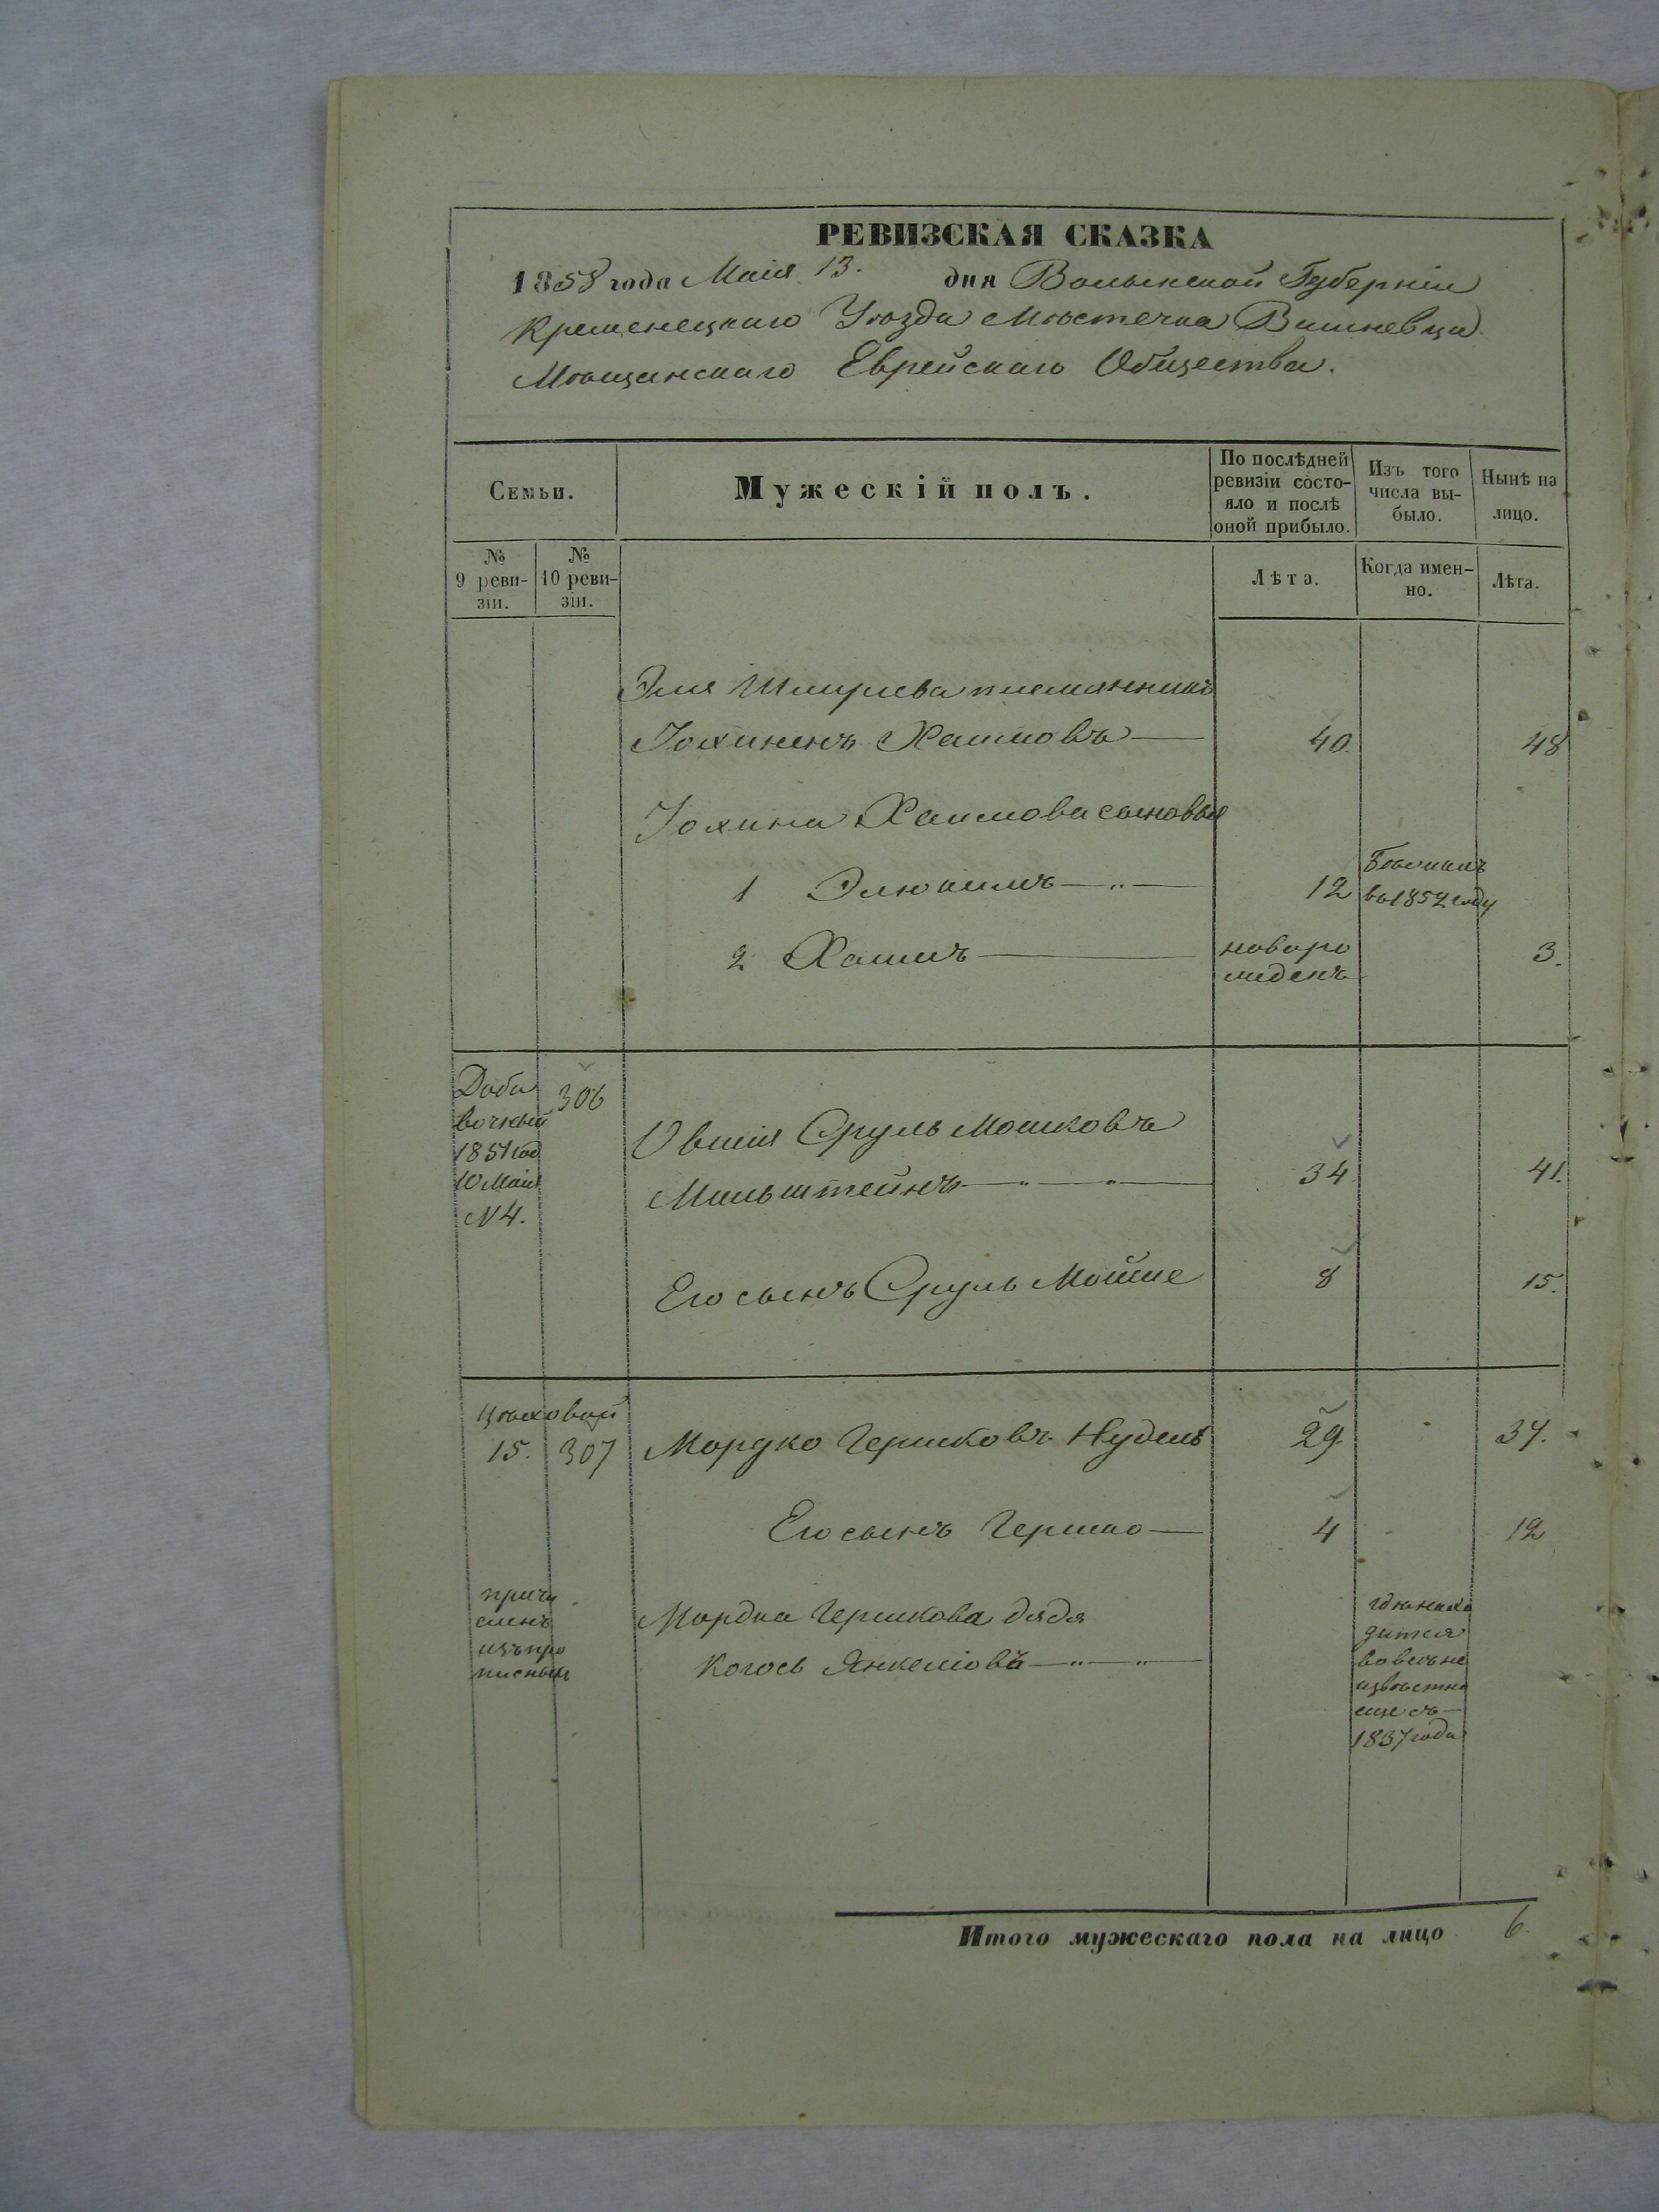 РЕВИЗСКАЯ СКАЗКА
1858 года Маія 13. дня Волынской Губерніи
Кременецкаго Уѣзда Мѣстечка Вишневца
Мѣщанскаго Еврейскаго Общества.
Семьи.
Мужескій полъ.
По послѣдней ревизіи состояло и послѣ оной прибыло.
Изъ того числа выбыло.
Нынѣ на лицо.
№ 9 ревизіи.
№ 10 ревизіи.
Лѣта.
Когда именно.
Лѣта.
Эля Шмирева племянникъ
Хаимовъ — 40. 48
Хаимова сыновья
1 Элюкимъ — 12 Бѣжалъ въ 1852 году
2 Хаимъ — новорожденъ 3.
Добавочный 1851 год 10 Маія N 4.
306
Овшія Сруль Мошковъ
Мильштейнъ — 34 41.
Его сынъ Сруль Мойше 8 15.
Цѣховой
15. 307 Мордко Гершковъ Нудель 29. 37.
Его сынъ Гершко — 4 12
причисленъ изъ прописныхъ
Мордка Гершкова дядя
Когось Янкеліовъ —
гдѣ находится вовсѣ неизвѣстно еще съ — 1837 года
Итого мужескаго пола на лицо 6.